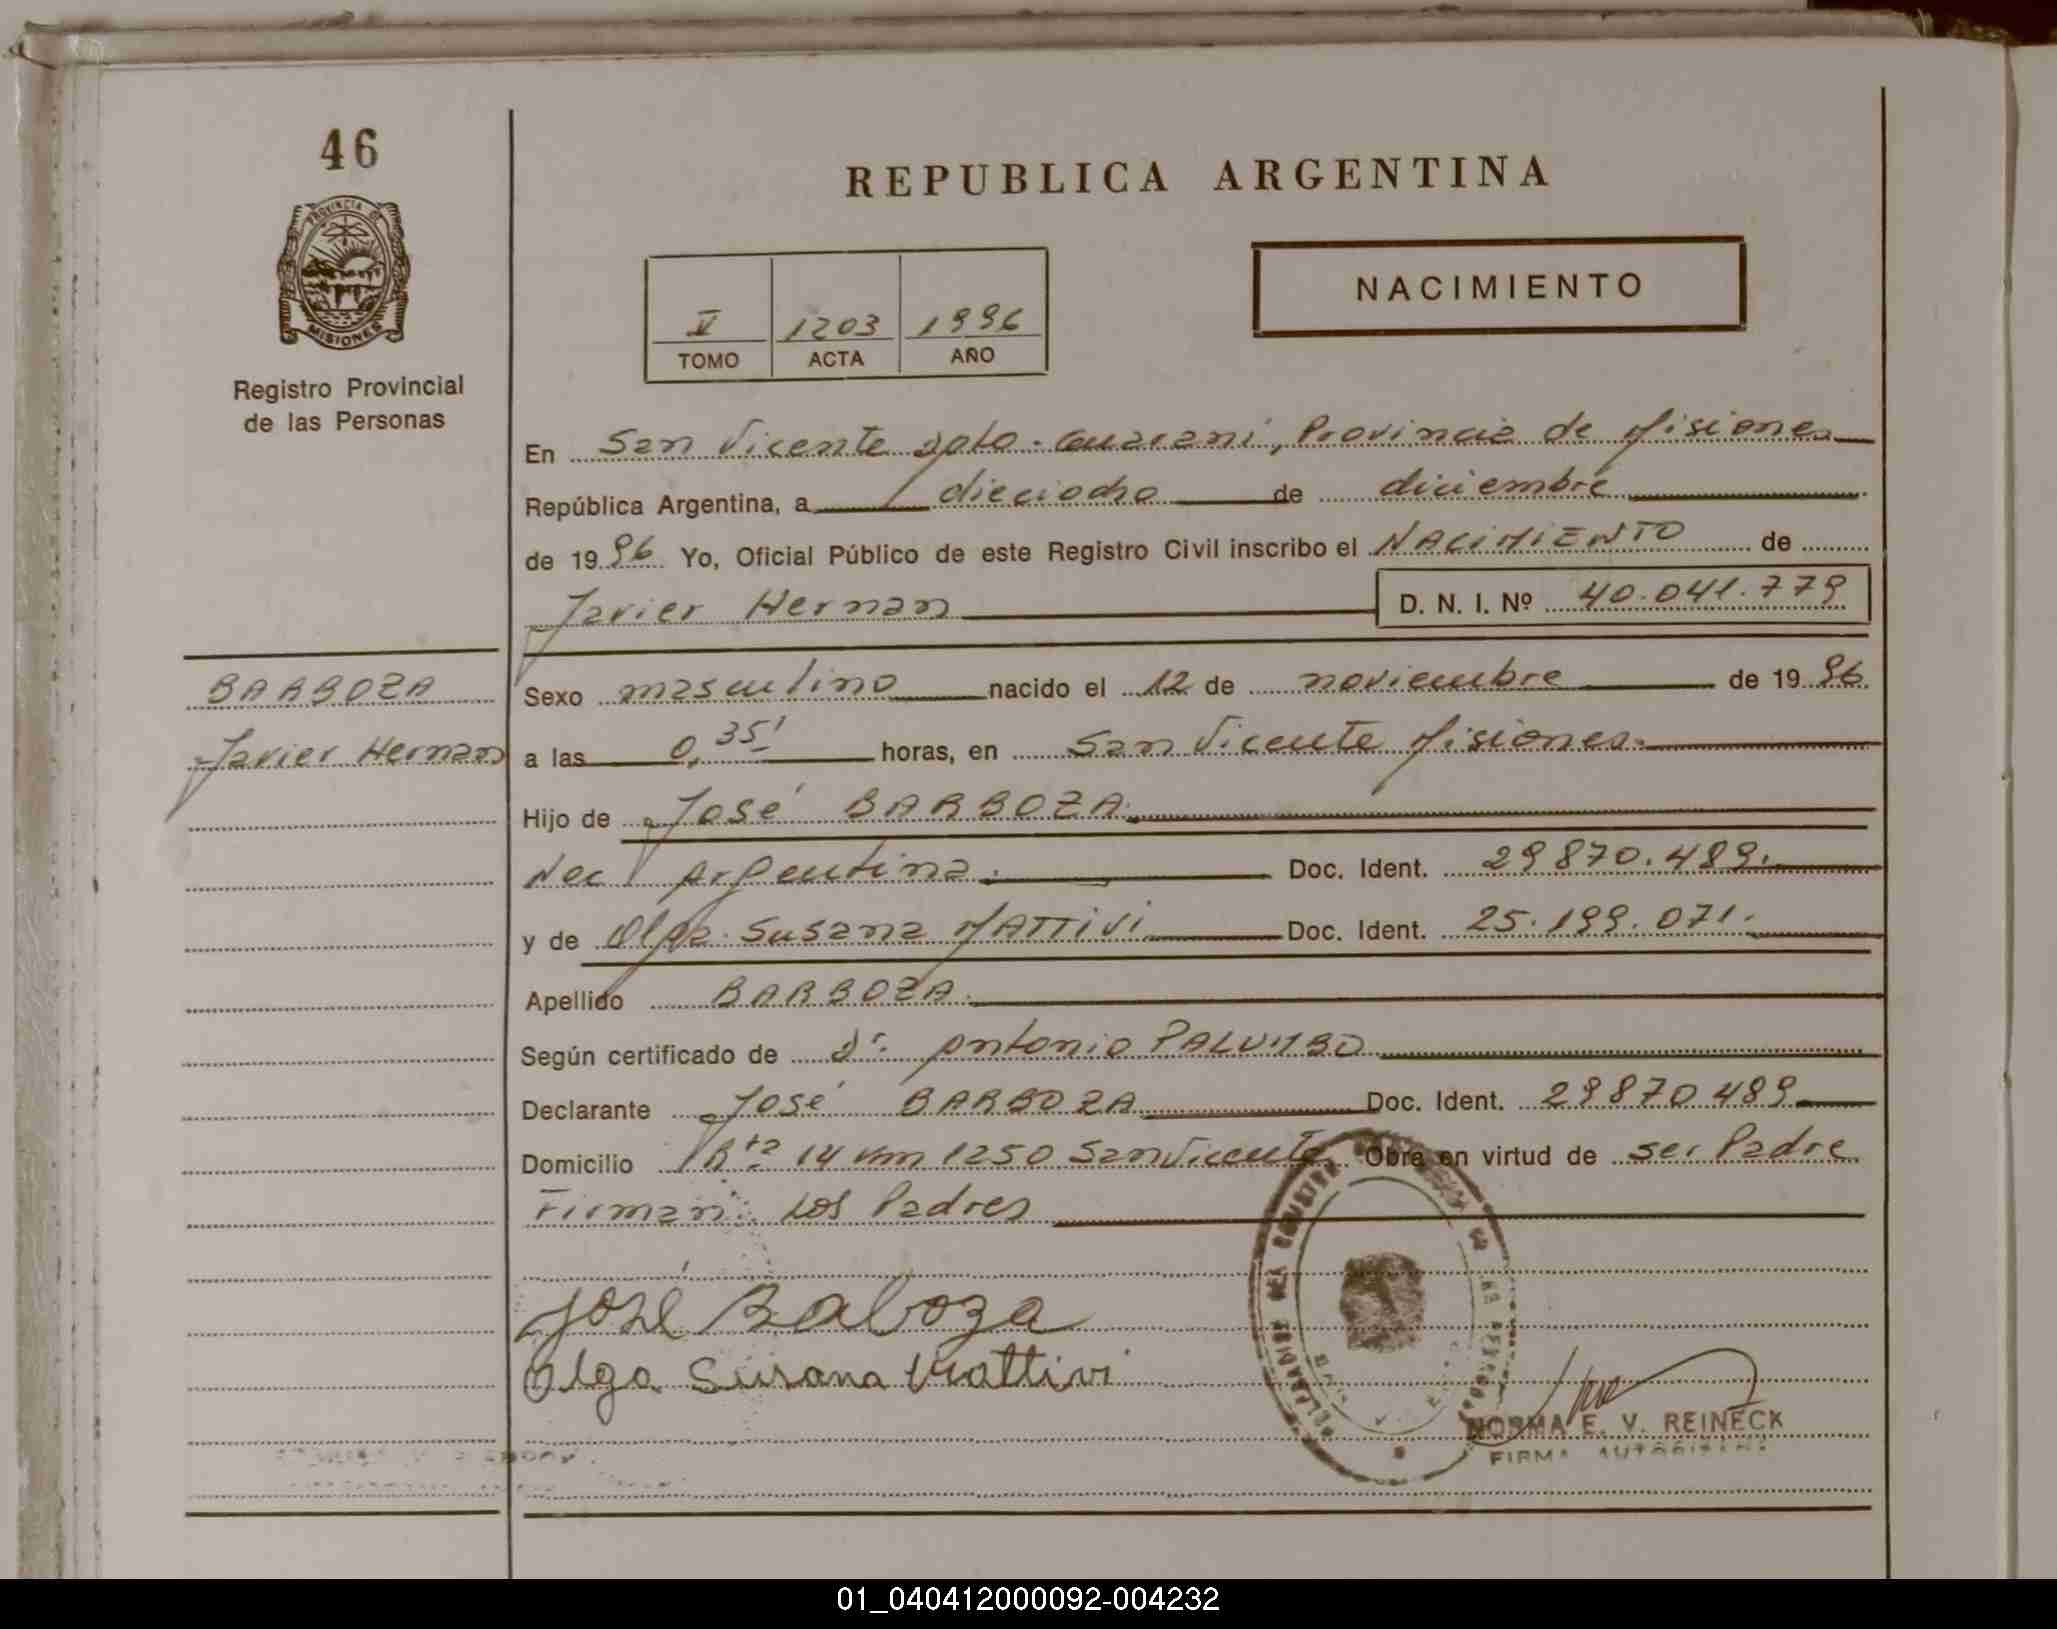 46
PROVINCIA DE
MISIONES
Registro Provincial
de las Personas
REPUBLICA ARGENTINA
NACIMIENTO
V 1203 1996
TOMO ACTA AÑO
En San Vicente Dpto. Guarani, Provincia de Misiones
República Argentina, a dieciocho de diciembre
de 1996 Yo, Oficial Público de este Registro Civil inscribo el NACIMIENTO de
Javier Hernan D. N. I. Nº 40.041.779
BARBOZA
Javier Hernan
Sexo masculino nacido el 12 de noviembre de 1996
a las 0,35' horas, en San Vicente Misiones.
Hijo de José BARBOZA.
Nac Argentina. Doc. Ident. 29870.489.
y de Olga Susana MATTIVI Doc. Ident. 25.199.071.
Apellido BARBOZA.
Según certificado de Dr. Antonio PALUMBO
Declarante José BARBOZA Doc. Ident. 29870489
Domicilio Rta 14 Km 1250 San Vicente Obra en virtud de ser Padre
Firman: Los Padres
José Barboza
Olga Susana Mattivi
NORMA E. V. REINECK
FIRMA AUTORIZADA
01_040412000092-004232